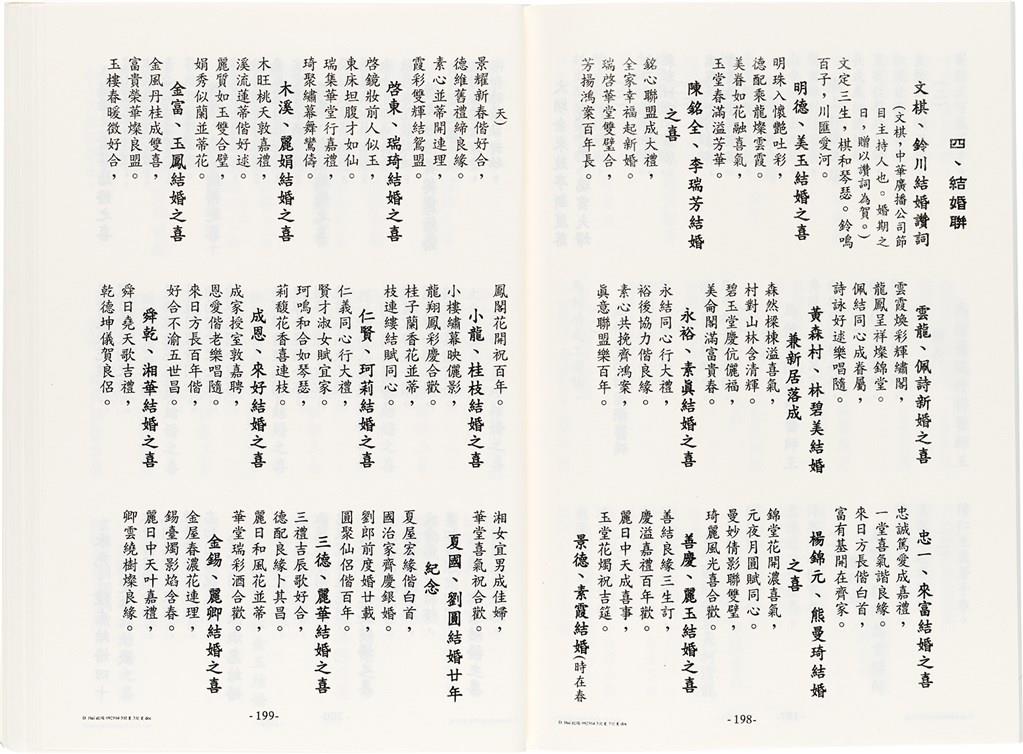 四、結婚聯
文棋、鈴川結婚讚詞
(文棋，中華廣播公司節
目主持人也。婚期之
日，贈以讚詞為賀。)
文定三生，棋和琴瑟。鈴鳴
百子，川匯愛河。
明德、美玉結婚之喜
明珠入懷艷吐彩，
德配乘龍燦雲霞。
美眷如花融喜氣，
玉堂春滿溢芳華。
陳銘全、李瑞芳結婚
之喜
銘心聯盟成大禮，
全家幸福起新婚。
瑞啓華堂雙璧合，
芳揚鴻案百年長。
雲龍、佩詩新婚之喜
雲霞煥彩輝繡閣，
龍鳳呈祥燦錦堂。
佩結同心成眷屬，
詩詠好逑樂唱隨。
黃森村、林碧美結婚
兼新居落成
森然樑棟溢喜氣，
村對山林含清輝。
碧玉堂慶伉儷福，
美侖閣滿富貴春。
永裕、素眞結婚之喜
永結同心行大禮，
裕後協力偕良緣。
素心共挽齊鴻案，
眞意聯盟樂百年。
忠一、來富結婚之喜
忠誠篤愛成嘉禮，
一堂喜氣諧良緣。
來日方長偕白首，
富有基開在齊家。
楊錦元、熊曼琦結婚
之喜
錦堂花開濃喜氣，
元夜月圓賦同心。
曼妙倩影聯雙璧，
琦麗風光喜合歡。
善慶、麗玉結婚之喜
善結良緣三生訂，
慶溢嘉禮百年歡。
麗日中天成喜事，
玉堂花燭祝吉筵。
景德、素霞結婚(時在春
-198-
天)
景耀新春偕好合，
德維舊禮締良緣。
素心並蒂開連理，
霞彩雙輝結鴛盟。
啓東、瑞琦結婚之喜
啓鏡妝前人似玉，
東床坦腹才如仙。
瑞集華堂行嘉禮，
琦聚繡幕舞鸞儔。
木溪、麗娟結婚之喜
木旺桃夭敦嘉禮，
溪流蓮蒂偕好逑。
麗質如玉雙合璧，
娟秀似蘭並蒂花。
金富、玉鳳結婚之喜
金風丹桂成雙喜，
富貴榮華燦良盟。
玉樓春暖徵好合，
鳳閣花開祝百年。
小龍、桂枝結婚之喜
小樓繡幕映儷影，
龍翔鳳彩慶合歡。
桂子蘭香花並蒂，
枝連縷結賦同心。
仁賢、珂莉結婚之喜
仁義同心行大禮，
賢才淑女賦宜家。
珂鳴和合如琴瑟，
莉馥花香喜連枝。
成恩、來好結婚之喜
成家授室敦嘉聘，
恩愛偕老樂唱隨。
來日方長百年偕，
好合不渝五世昌。
舜乾、湘華結婚之喜
舜日堯天歌吉禮，
乾德坤儀賀良侶。
湘女宜男成佳婦，
華堂喜氣祝合歡。
夏國、劉圓結婚廿年
紀念
夏屋宏緣偕白首，
國治家齊慶銀婚。
劉郎前度婚廿載，
圓聚仙侶偕百年。
三德、麗華結婚之喜
三禮吉辰歌好合，
德配良緣卜其昌。
麗日和風花並蒂，
華堂瑞彩酒合歡。
金錫、麗卿結婚之喜
金屋春濃花連理，
錫臺燭影焰含春。
麗日中天叶嘉禮，
卿雲繞樹燦良緣。
-199-